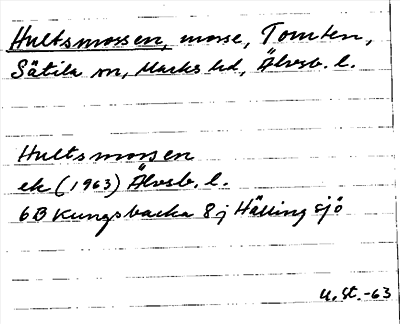 Hultsmossen, mosse, Tomten,
Sätila sn, Marks hd, Älvsb. l.
Hultsmossen
ek (1963) Älvsb. l.
6B Kungsbacka 8j Hällingsjö
U.St.-63